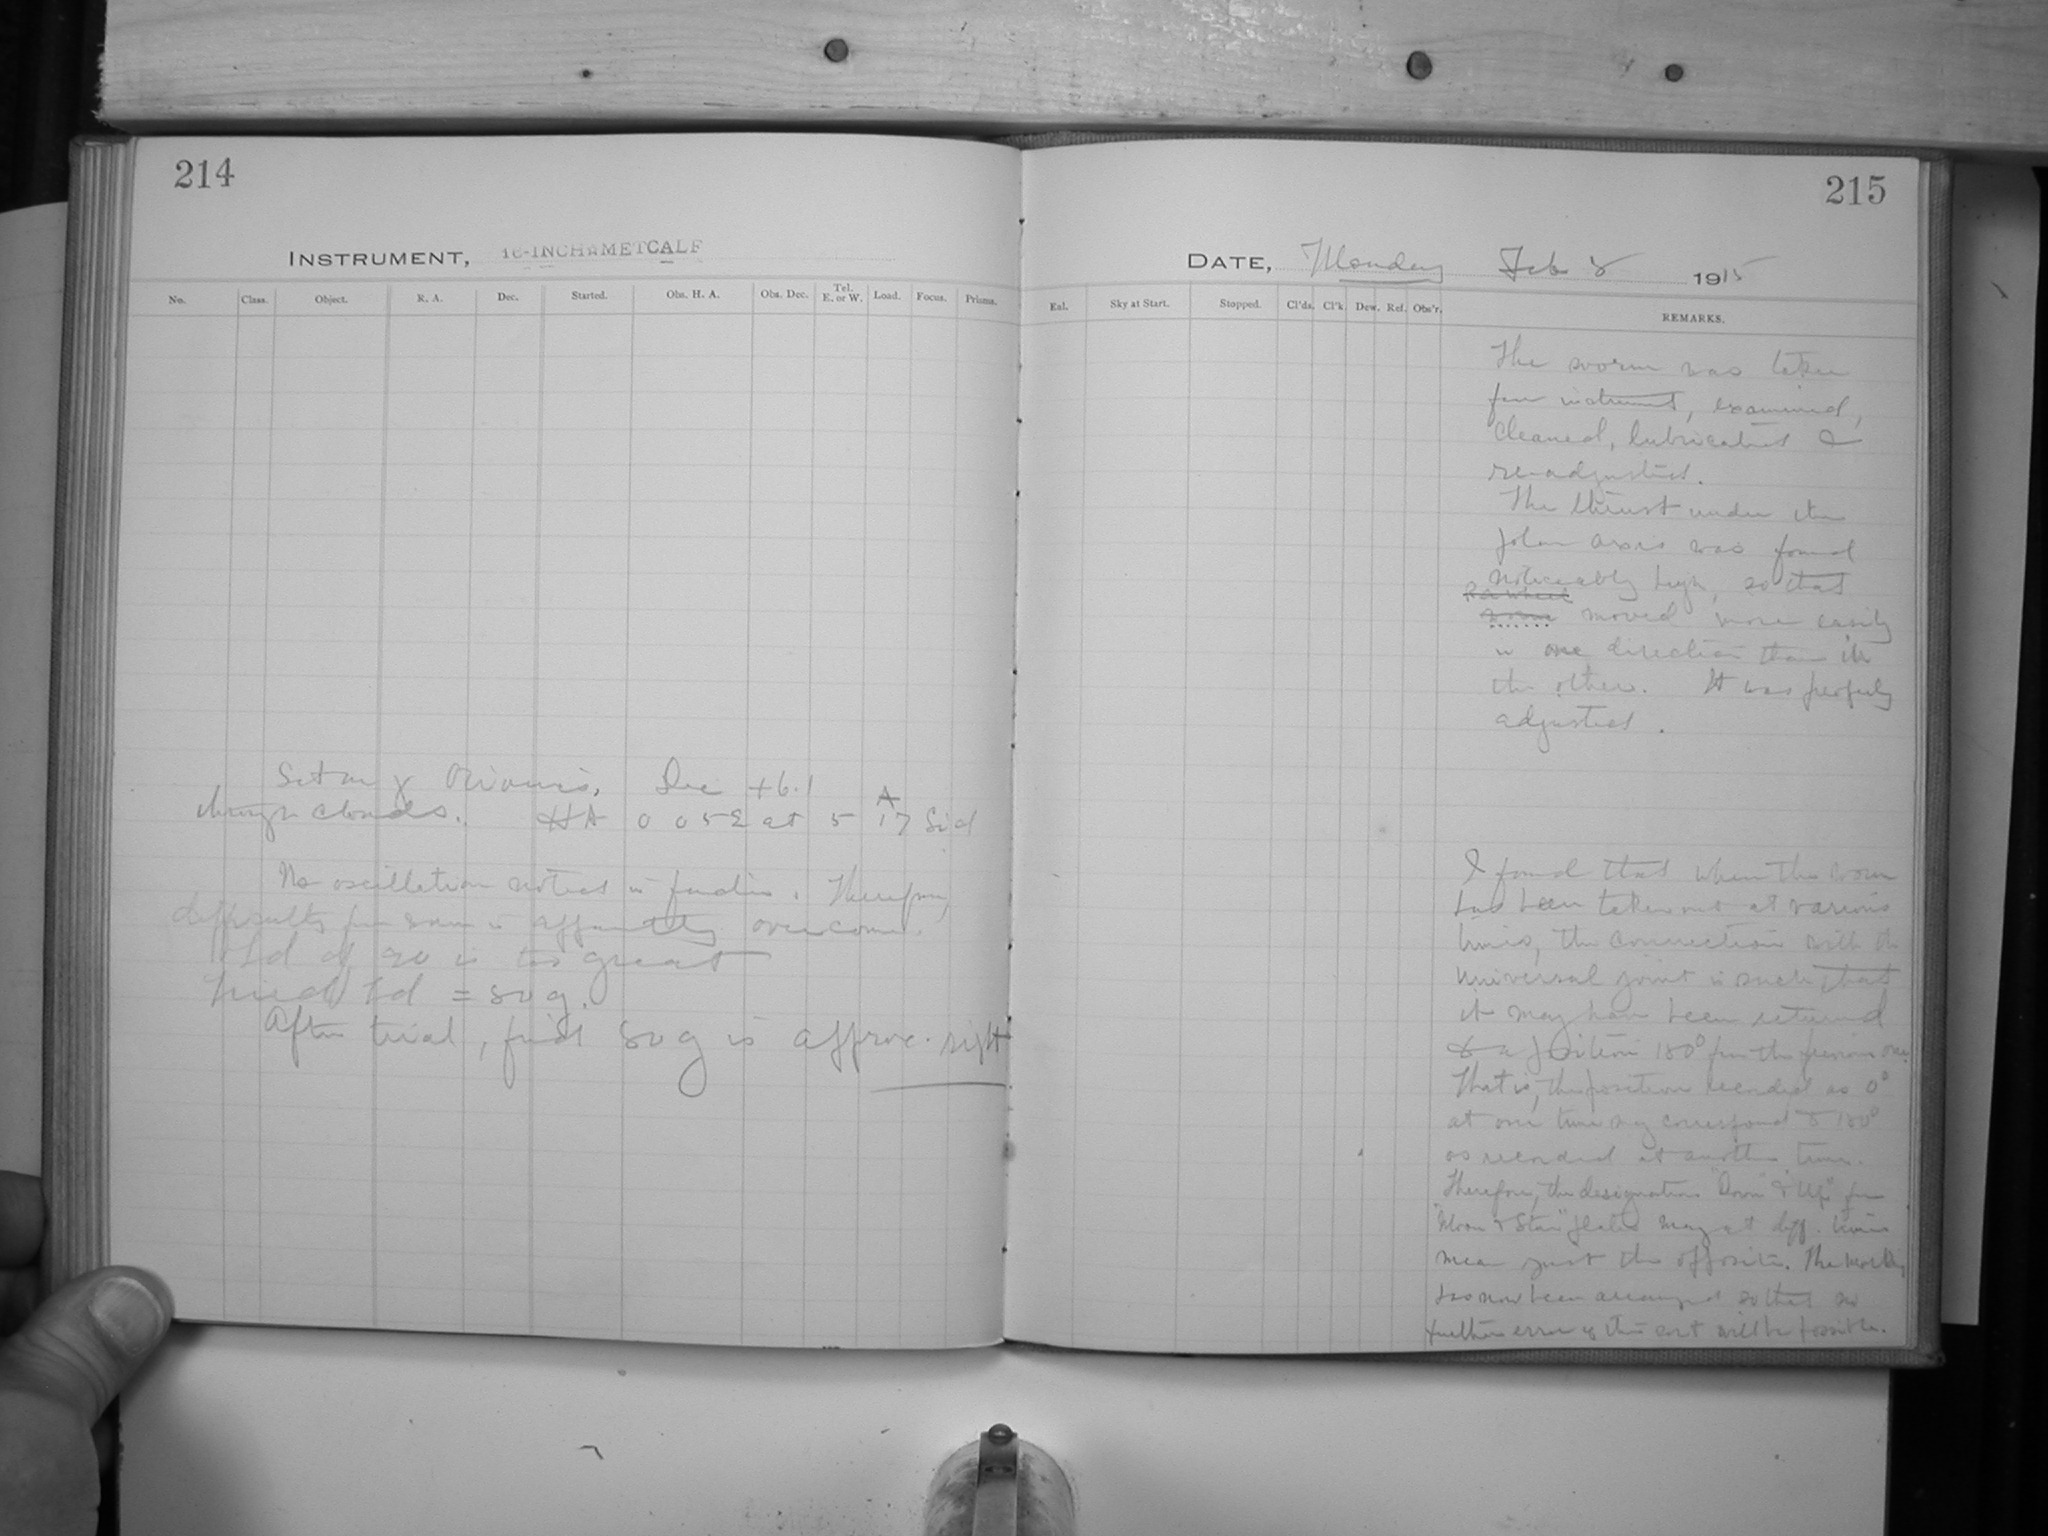 214
INSTRUMENT, 16-INCH METCALF
No. Class. Object. R. A. Dec. Started. Obs. H. A. Obs. Dec. Tel. E. or W. Load. Focus. Prisms.
Set on γ Orionis, Dec +6.1
through clouds. HA 0 052 at 5 17 Sid
No oscillation noticed in . Therefore,
difficulty is apparently overcome.
Ld of 90 is too great
tried Ld = 80 g.
After trial, find 80 g is approx. right
215
DATE, Monday Feb 8 1915
Eal. Sky at Start. Stopped. Cl'ds. Cl'k. Dew. Ref. Obs'r. REMARKS.
The worm was taken
from instrument, examined,
cleaned, lubricated &
re-adjusted.
The thrust under the
polar axis was found
noticeably high, so that
R A wheel
worm moved more easily
in one direction than in
the other. It was properly
adjusted.
I found that when the worm
has been taken out at various
times, the connection with the
universal joint is such that
it may have been returned
to a position 180° from the previous one.
That is, the position recorded as 0°
at one time may correspond to 180°
as recorded at another time.
Therefore, the designations "Down" & "Up" for
"Moon & Star" plates may at diff. times
mean just the opposite. The
has now been arranged so that no
further error of this sort will be possible.